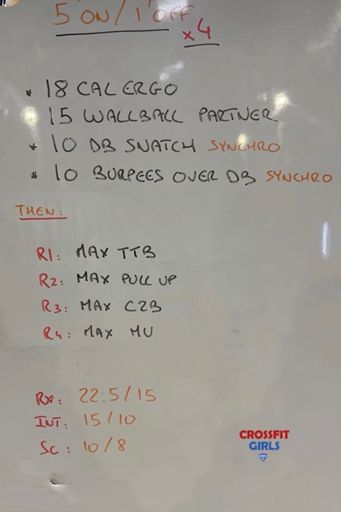 5 ON / 1' OFF
x4
* 18 CAL ERGO
15 WALLBALL PARTNER
* 10 DB SNATCH SYNCHRO
* 10 BURPEES OVER DB SYNCHRO
THEN:
R1: MAX TTB
R2: MAX PULL UP
R3: MAX C2B
R4: MAX MU
RX: 22.5/15
INT: 15/10
SC: 10/8
CROSSFIT
GIRLS